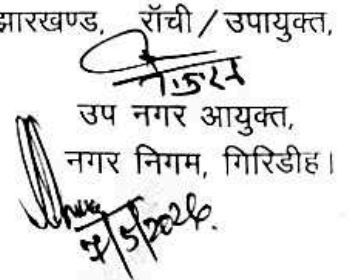 झारखण्ड, राँची/उपायुक्त,
उप नगर आयुक्त,
नगर निगम, गिरिडीह।
7/5/2026.